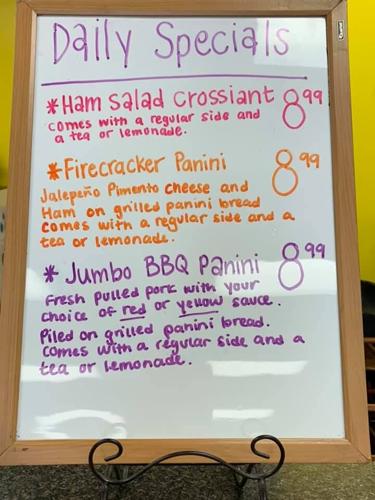 Daily Specials
*Ham Salad Crossiant 8.99
comes with a regular side and
a tea or lemonade.
*Firecracker Panini 8.99
Jalepeño Pimento cheese and
Ham on grilled panini bread
comes with a regular side and a
tea or lemonade.
* Jumbo BBQ Panini 8.99
Fresh Pulled pork with your
choice of red or yellow sauce.
Piled on grilled panini bread.
comes with a regular side and a
tea or lemonade.